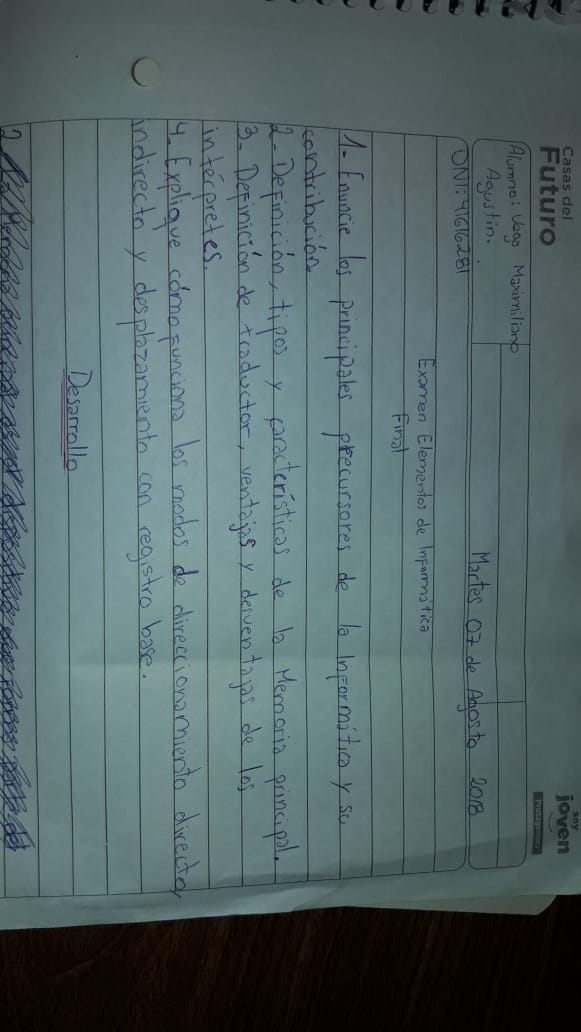 Casas del
Futuro
soy
joven
Alumno: Vargas Maximiliano
Agustín.
Martes 07 de Agosto 2018
DNI: 41616281
Examen Elementos de Informática
Final
1- Enuncie los principales precursores de la Informática y su
contribución.
2- Definición, tipos y características de la Memoria principal.
3- Definición de traductor, ventajas y desventajas de los
intérpretes.
4- Explique cómo funciona los modos de direccionamiento directo,
indirecto y desplazamiento con registro base.
Desarrollo
2-